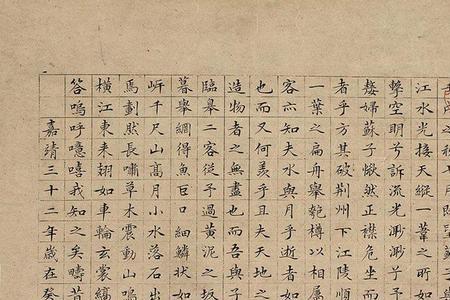 之秋七月既望蘇
江水光接天縱一葦之所如
擊空明兮訴流光渺渺兮予
嫠婦蘇子愀然正襟危坐而
者乎方其破荊州下江陵順
一葉之扁舟舉匏樽以相屬
客亦知夫水與月乎逝者如
也而又何羨乎且夫天地之
造物者之無盡也而吾與子
臨皋二客從予過黃泥之坂
暮舉網得魚巨口細鱗狀如
岸千尺山高月小水落石出
焉劃然長嘯草木震動山鳴
橫江東來翅如車輪玄裳縞
答嗚呼噫嘻我知之矣疇昔
嘉靖三十二年歲在癸